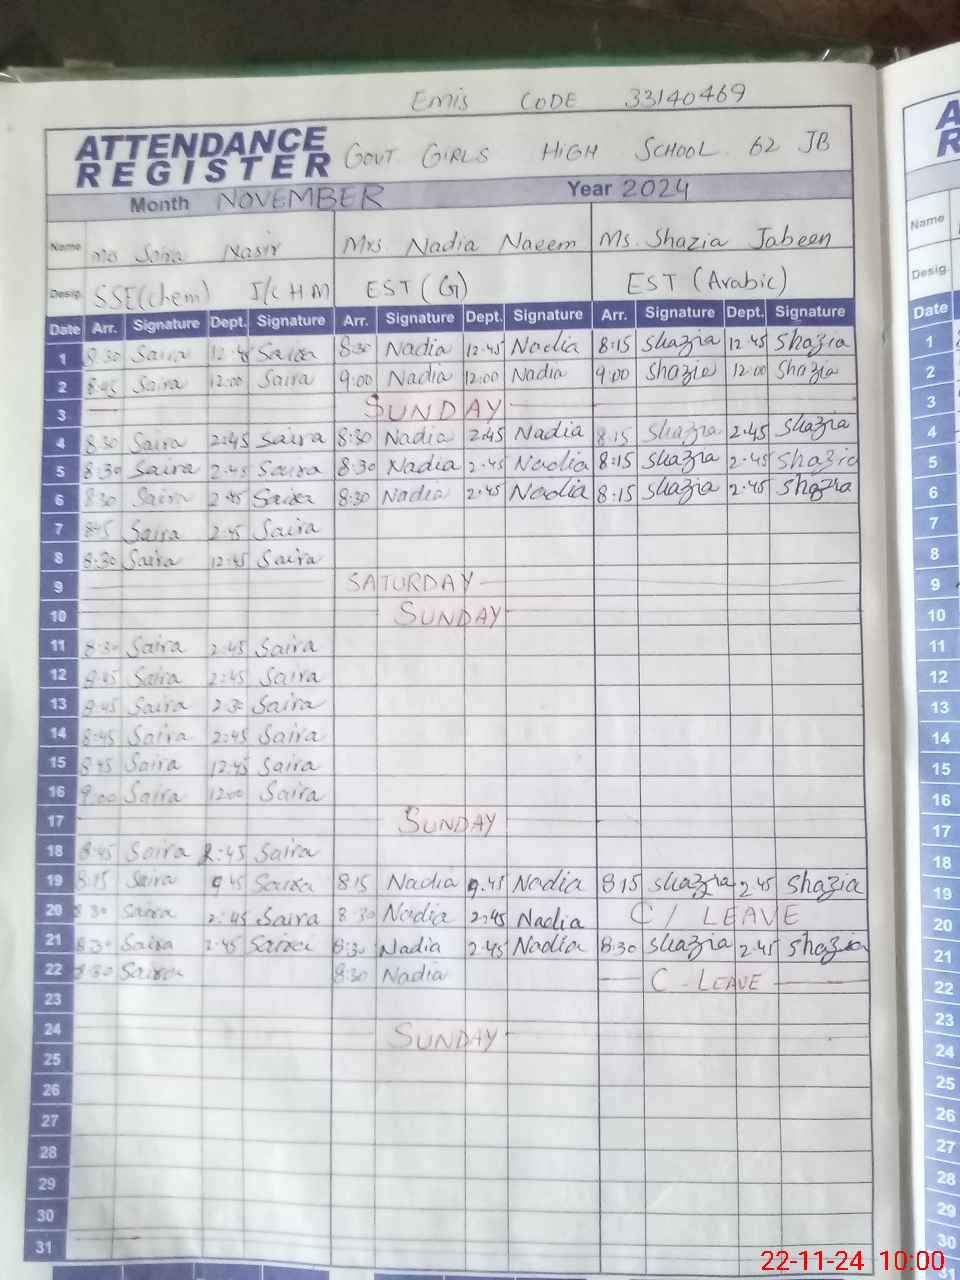 Emis CODE 33140469
ATTENDANCE REGISTER GOVT GIRLS HIGH SCHOOL 62 JB
Month NOVEMBER Year 2024
Name Mrs Saira Nasir Mrs. Nadia Naeem Ms. Shazia Jabeen
Desig. SSE(chem) I/C HM EST (G) EST (Arabic)
Date Arr. Signature Dept. Signature Arr. Signature Dept. Signature Arr. Signature Dept. Signature
1 8:30 Saira 12:45 Saira 8:30 Nadia 12.45 Nadia 8:15 Shazia 12.45 Shazia
2 8:45 Saira 12:00 Saira 9:00 Nadia 12:00 Nadia 9:00 Shazia 12:00 Shazia
3 SUNDAY
4 8:30 Saira 2:45 Saira 8:30 Nadia 2.45 Nadia 8:15 Shazia 2.45 Shazia
5 8:30 Saira 2.45 Saira 8:30 Nadia 2.45 Nadia 8:15 Shazia 2.45 Shazia
6 8:30 Saira 2.45 Saira 8:30 Nadia 2.45 Nadia 8:15 Shazia 2.45 Shazia
7 8:45 Saira 2:45 Saira
8 8:30 Saira 12:45 Saira
9 SATURDAY
10 SUNDAY
11 8:30 Saira 2:45 Saira
12 8:45 Saira 2:45 Saira
13 8:45 Saira 2:30 Saira
14 8:45 Saira 2:45 Saira
15 8:45 Saira 12:45 Saira
16 9:00 Saira 12:00 Saira
17 SUNDAY
18 8:45 Saira 2:45 Saira
19 8:15 Saira 45 Saira 8:15 Nadia .45 Nadia 8:15 Shazia 2.45 Shazia
20 8:30 Saira 2:45 Saira 8:30 Nadia 2:45 Nadia C/ LEAVE
21 8:30 Saira 2.45 Saira 8:30 Nadia 2.45 Nadia 8:30 Shazia 2.45 Shazia
22 8:30 Saira 8:30 Nadia C - LEAVE
23
24 SUNDAY
25
26
27
28
29
30
31
A
R
Name
Desig.
Date
1
2
3
4
5
6
7
8
9
10
11
12
13
14
15
16
17
18
19
20
21
22
23
24
25
26
27
28
29
30
31
22-11-24 10:00